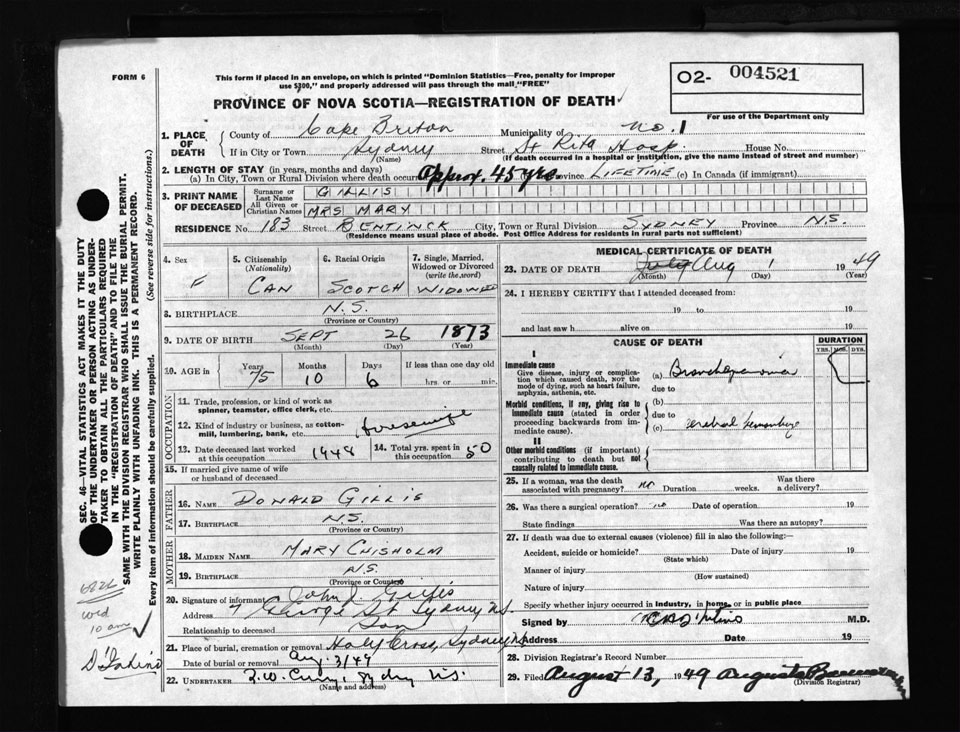 FORM 6
This form if placed in an envelope, on which is printed "Dominion Statistics—Free, penalty for improper
use $300," and properly addressed will pass through the mail "FREE"
O2- 004521
For use of the Department only
PROVINCE OF NOVA SCOTIA—REGISTRATION OF DEATH
1. PLACE OF DEATH
County of Cape Breton Municipality of No. 1
If in City or Town Sydney Street St Rita Hosp. House No.
(Name) (If death occurred in a hospital or institution, give the name instead of street and number)
2. LENGTH OF STAY (in years, months and days)
(a) In City, Town or Rural Division where death occurred approx. 45 yrs. Province LIFETIME (c) In Canada (if immigrant)
3. PRINT NAME OF DECEASED
Surname or Last Name GILLIS
All Given or Christian Names MRS MARY
RESIDENCE No. 183 Street BENTINCK City, Town or Rural Division SYDNEY Province N.S.
(Residence means usual place of abode. Post Office Address for residents in rural parts not sufficient)
4. Sex F
5. Citizenship (Nationality) CAN
6. Racial Origin SCOTCH
7. Single, Married, Widowed or Divorced (write the word) WIDOWED
8. BIRTHPLACE N.S.
(Province or Country)
9. DATE OF BIRTH SEPT 26 1873
(Month) (Day) (Year)
10. AGE in Years 75 Months 10 Days 6 If less than one day old hrs. or min.
OCCUPATION
11. Trade, profession, or kind of work as spinner, teamster, office clerk, etc.
12. Kind of industry or business, as cotton-mill, lumbering, bank, etc. Housewife
13. Date deceased last worked at this occupation 1948
14. Total yrs. spent in this occupation 50
15. If married give name of wife or husband of deceased
FATHER
16. NAME DONALD GILLIS
17. BIRTHPLACE N.S.
(Province or Country)
MOTHER
18. MAIDEN NAME MARY CHISHOLM
19. BIRTHPLACE N.S.
(Province or Country)
20. Signature of informant John J. Gillis
Address 7 George St Sydney N.S.
Relationship to deceased Son
21. Place of burial, cremation or removal Holy Cross, Sydney N.S.
Date of burial or removal Aug. 3/49
22. UNDERTAKER Sydney N.S.
(Name and address)
MEDICAL CERTIFICATE OF DEATH
23. DATE OF DEATH July Aug 1 1949
(Month) (Day) (Year)
24. I HEREBY CERTIFY that I attended deceased from:
19 to 19
and last saw h alive on 19
CAUSE OF DEATH
DURATION
YRS. MOS. DYS.
I
Immediate cause
Give disease, injury or complication which caused death, NOT the mode of dying, such as heart failure, asphyxia, asthenia, etc.
(a) Bronchopneumonia
due to
Morbid conditions, if any, giving rise to immediate cause (stated in order proceeding backwards from immediate cause).
(b)
due to
(c) cerebral hemorrhage
II
Other morbid conditions (if important) contributing to death but not causally related to immediate cause.
25. If a woman, was the death associated with pregnancy? no Duration weeks. Was there a delivery?
26. Was there a surgical operation? no Date of operation 19
State findings Was there an autopsy?
27. If death was due to external causes (violence) fill in also the following:—
Accident, suicide or homicide? Date of injury 19
(State which)
Manner of injury
(How sustained)
Nature of injury
Specify whether injury occurred in industry, in home, or in public place
Signed by M.D.
Address Date 19
28. Division Registrar's Record Number
29. Filed August 13, 1949
(Division Registrar)
SEC. 46—VITAL STATISTICS ACT MAKES IT THE DUTY
OF THE UNDERTAKER OR PERSON ACTING AS UNDER-
TAKER TO OBTAIN ALL THE PARTICULARS REQUIRED
IN THE "REGISTRATION OF DEATH" AND TO FILE THE
SAME WITH THE DIVISION REGISTRAR WHO SHALL ISSUE THE BURIAL PERMIT.
WRITE PLAINLY WITH UNFADING INK. THIS IS A PERMANENT RECORD.
Every item of information should be carefully supplied. (See reverse side for instructions.)
wed
10 am